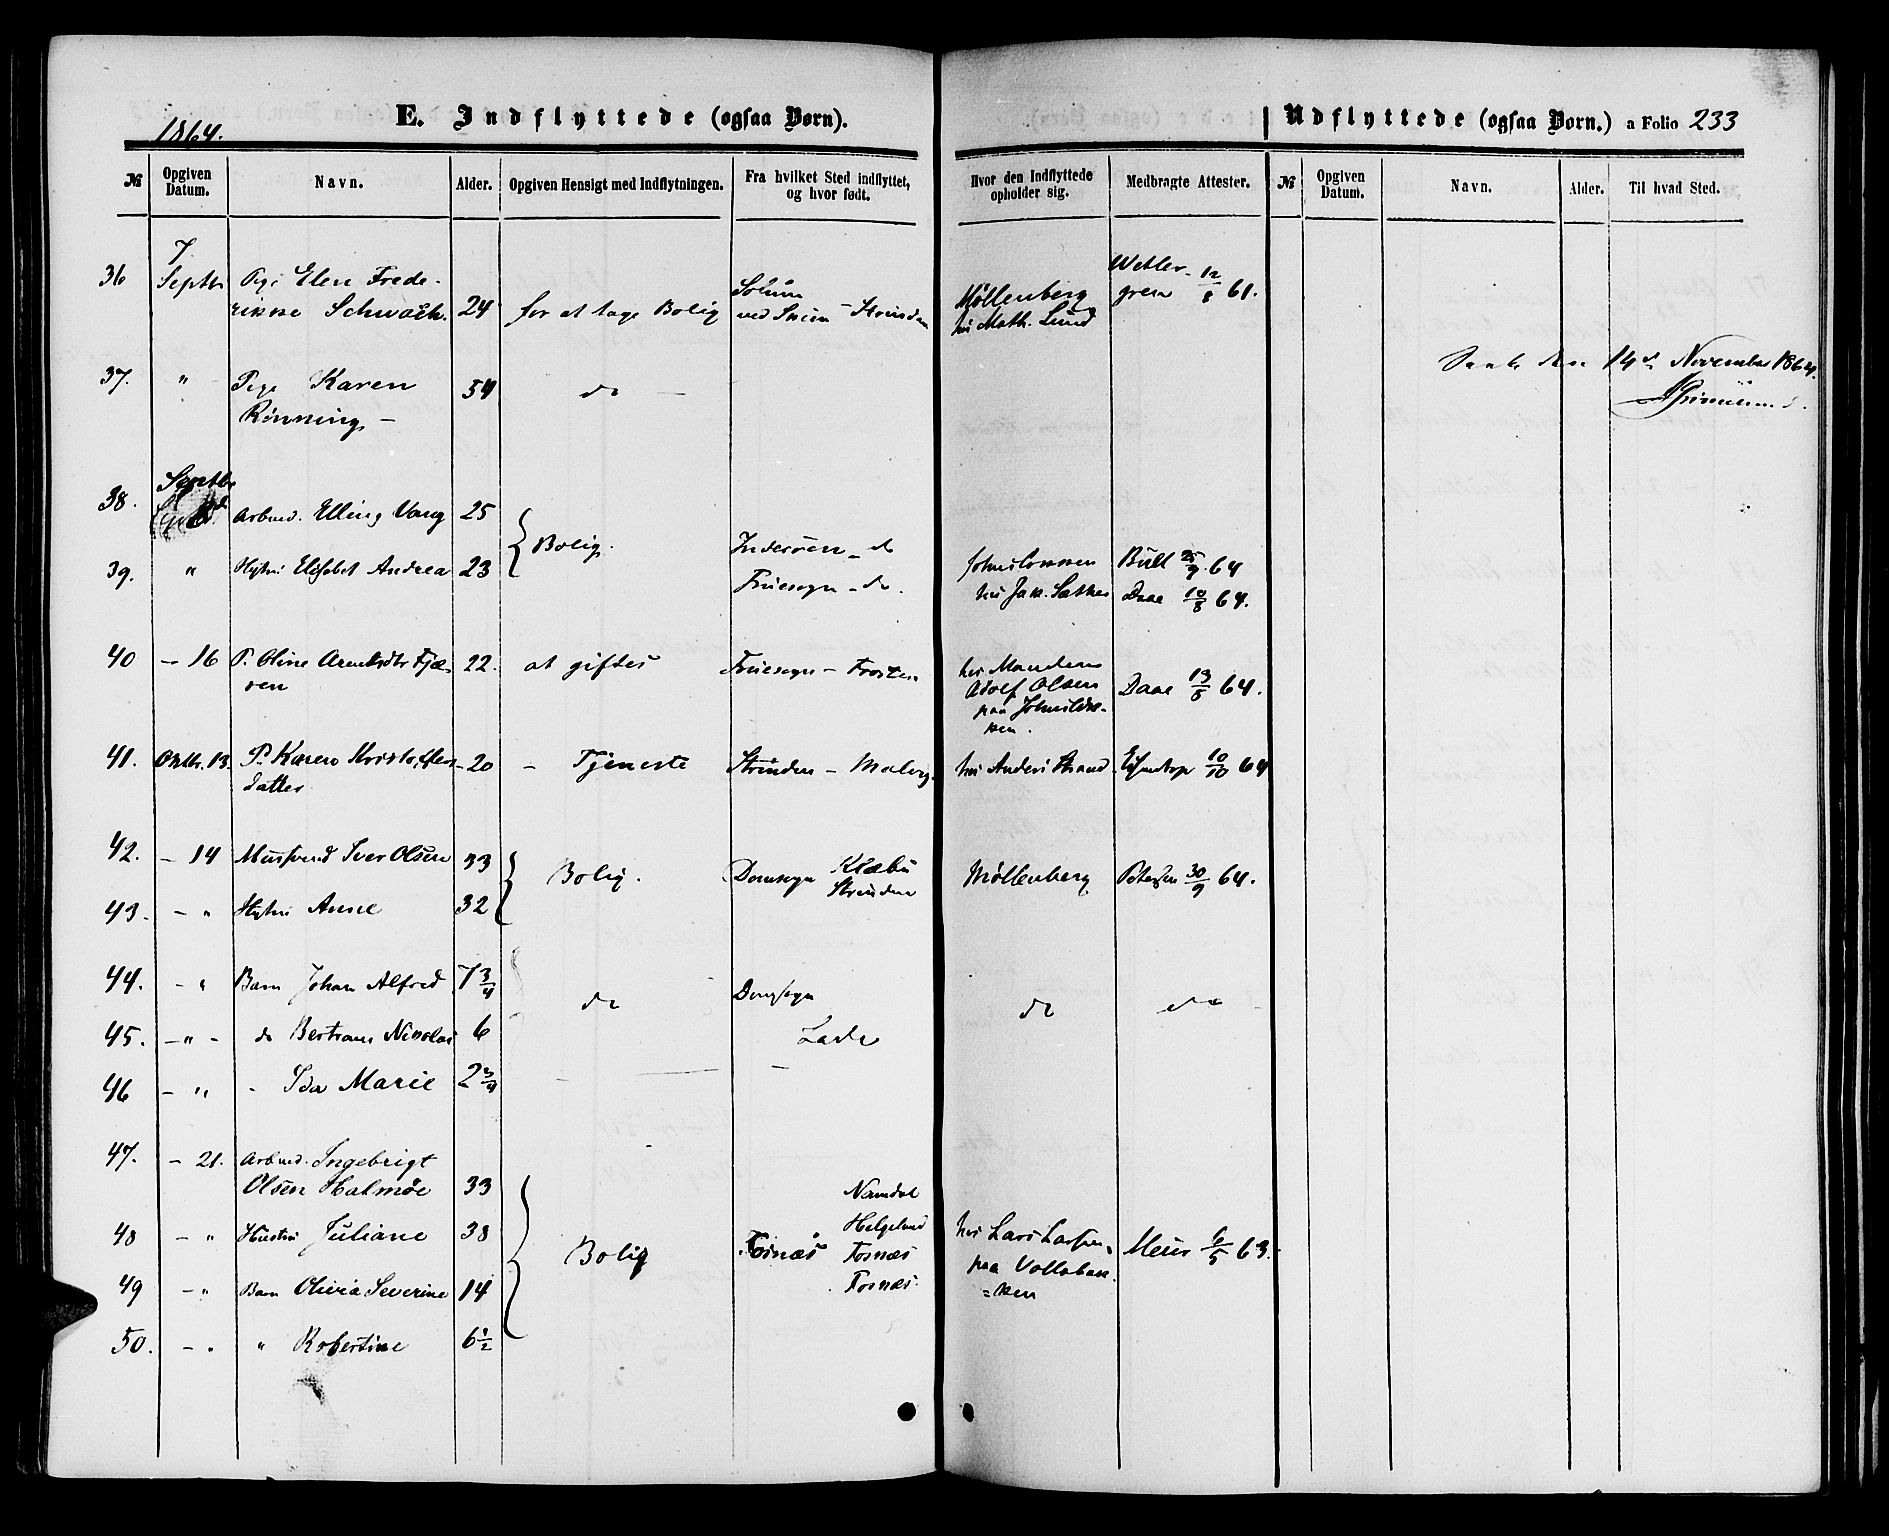 1864.
E. Indflyttede (ogsaa Børn).
Udflyttede (ogsaa Børn.) a Folio 233
№ Opgiven Datum. Navn. Alder. Opgiven Hensigt med Indflytningen. Fra hvilket Sted indflyttet, og hvor født. Hvor den Indflyttede opholder sig. Medbragte Attester. № Opgiven Datum. Navn. Alder. Til hvad Sted.
7
36 Septbr Pige Elen Frede-
rikke Schwach. 24 for at tage Bolig Solum
ved Skien Møllenberg
hos Math. Lund Wetler-
gren 12/8 61.
den 14de November 1864.
37. " Pige Karen
Rønning 54 do
38. Septbr Arbmd. Elling Vang 25
Bolig. Inderøen - do Bull 25/9 64
39. " Hustru Elisabet Andrea 23 Fruesogn - do. hos Jak. Sæther Daae 10/8 64.
40 - 16 P. Oline Arntsdtr Fjæ-
ren 22. at giftes Fruesogn - Frosten hos Manden
Adolf Olsen
paa
ken. Daae 13/8 64.
41. Oktbr. 13. P. Karen Kristoffers-
datter 20 - Tjeneste Strinden - Malvig. hos Anders Strand 10/10 64
42. - 14 Iver Olsen 33
Bolig. Domsogn Klæbu
Strinden Møllenberg Petersen 30/9 64.
43. - " Hustru Anne 32
44. - " Barn Johan Alfred 7 3/4
do Domsogn do do
45. - " - do Bertram Nikolai 6 Lade
46 - " - Ida Marie 2 3/4
47. - 21. Arbmd. Ingebrigt
Olsen Halmøe 33 Namdal
48 - " Hustru Juliane 38 Bolig Fosnæs Helgeland
Fosnæs hos Lars Larsen
paa Vollabak-
=ken Meier 6/5 63.
49 - " Barn Olivia Severine 14 Fosnæs.
50. - " " Robertine 6 1/2